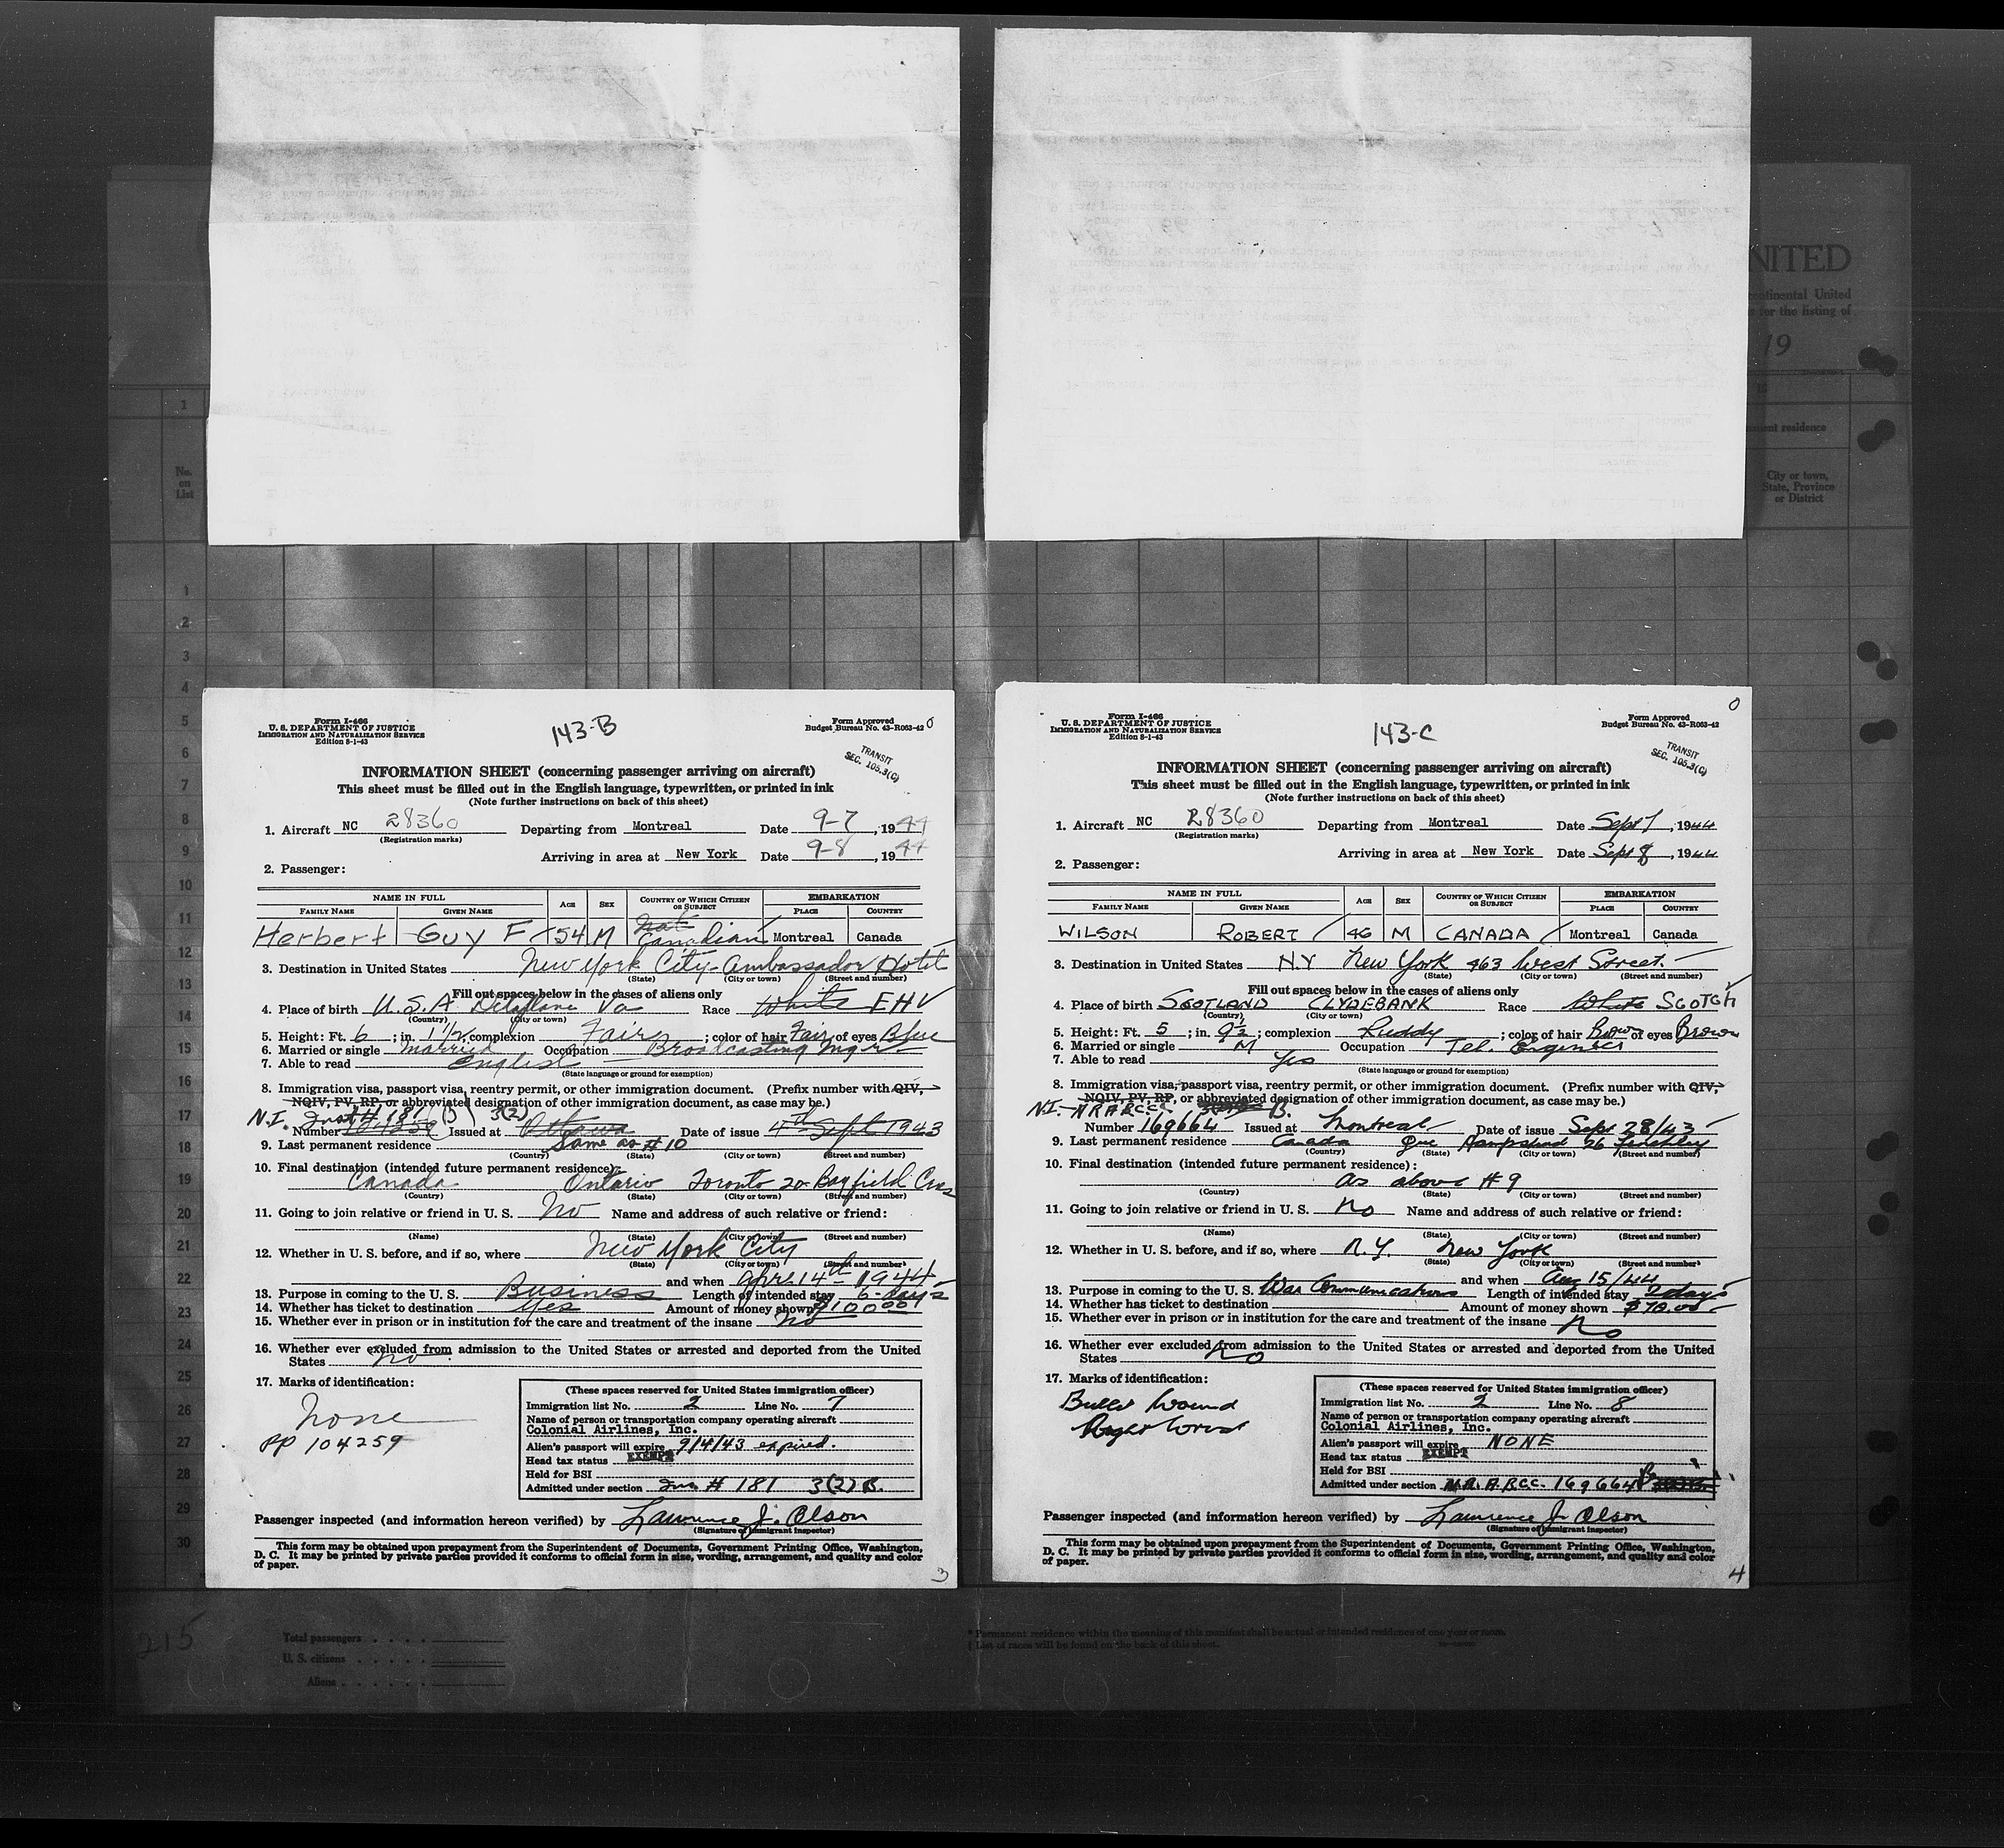 NITED
continental United
for the listing of
19
1
No.
on
List
permanent residence
City or town,
State, Province
or District
1
2
3
4
5
6
7
8
9
10
11
12
13
14
15
16
17
18
19
20
21
22
23
24
25
26
27
28
29
30
Form I-466
U. S. DEPARTMENT OF JUSTICE
IMMIGRATION AND NATURALIZATION SERVICE
Edition 8-1-43
143-B
Form Approved
Budget Bureau No. 43-R063-42
0
TRANSIT
SEC. 105.3(C)
INFORMATION SHEET (concerning passenger arriving on aircraft)
This sheet must be filled out in the English language, typewritten, or printed in ink
(Note further instructions on back of this sheet)
1. Aircraft NC 28360 Departing from Montreal Date 9-7, 1944
(Registration marks)
Arriving in area at New York Date 9-8, 1944
2. Passenger:
NAME IN FULL AGE SEX COUNTRY OF WHICH CITIZEN OR SUBJECT EMBARKATION
FAMILY NAME GIVEN NAME PLACE COUNTRY
Herbert Guy F 54 M Nat Canadian Montreal Canada
3. Destination in United States New York City - Ambassador Hotel
(State) (City or town) (Street and number)
Fill out spaces below in the cases of aliens only
4. Place of birth U.S.A Delaplane Va Race White EHV
(Country) (City or town)
5. Height: Ft. 6; in. 1 1/2 complexion Fair; color of hair Fair of eyes Blue
6. Married or single Married Occupation Broadcasting Mgr
7. Able to read English
(State language or ground for exemption)
8. Immigration visa, passport visa, reentry permit, or other immigration document. (Prefix number with QIV,
NQIV, PV, RP, or abbreviated designation of other immigration document, as case may be.)
N.I. Inst # 181 (B) 3(2)
Number 104259 Issued at Ottawa Date of issue 4th Sept 1943
9. Last permanent residence Same as # 10
(Country) (State) (City or town) (Street and number)
10. Final destination (intended future permanent residence):
Canada Ontario Toronto 20 Bayfield Cres
(Country) (State) (City or town) (Street and number)
11. Going to join relative or friend in U. S. No Name and address of such relative or friend:
(Name) (State) (City or town) (Street and number)
12. Whether in U. S. before, and if so, where New York City
(State) (City or town) (Street and number)
and when Apr. 14th 1944
13. Purpose in coming to the U. S. Business Length of intended stay 6 days
14. Whether has ticket to destination Yes Amount of money shown $100.00
15. Whether ever in prison or in institution for the care and treatment of the insane No
16. Whether ever excluded from admission to the United States or arrested and deported from the United
States No
17. Marks of identification:
None
PP 104259
(These spaces reserved for United States immigration officer)
Immigration list No. 2 Line No. 7
Name of person or transportation company operating aircraft
Colonial Airlines, Inc.
Alien's passport will expire 9/4/43 expired.
Head tax status EXEMPT
Held for BSI
Admitted under section Ins # 181 3(2) B.
Passenger inspected (and information hereon verified) by Lawrence J. Olson
(Signature of immigrant inspector)
This form may be obtained upon prepayment from the Superintendent of Documents, Government Printing Office, Washington,
D. C. It may be printed by private parties provided it conforms to official form in size, wording, arrangement, and quality and color
of paper.
3
Form I-466
U. S. DEPARTMENT OF JUSTICE
IMMIGRATION AND NATURALIZATION SERVICE
Edition 8-1-43
143-C
Form Approved
Budget Bureau No. 43-R063-42
0
TRANSIT
SEC. 105.3(C)
INFORMATION SHEET (concerning passenger arriving on aircraft)
This sheet must be filled out in the English language, typewritten, or printed in ink
(Note further instructions on back of this sheet)
1. Aircraft NC 28360 Departing from Montreal Date Sept 7, 1944
(Registration marks)
Arriving in area at New York Date Sept 8, 1944
2. Passenger:
NAME IN FULL AGE SEX COUNTRY OF WHICH CITIZEN OR SUBJECT EMBARKATION
FAMILY NAME GIVEN NAME PLACE COUNTRY
WILSON ROBERT 46 M CANADA Montreal Canada
3. Destination in United States N.Y New York 463 West Street.
(State) (City or town) (Street and number)
Fill out spaces below in the cases of aliens only
4. Place of birth SCOTLAND CLYDEBANK Race White SCOTCH
(Country) (City or town)
5. Height: Ft. 5; in. 9 1/2; complexion Ruddy; color of hair Brown of eyes Brown
6. Married or single M Occupation Tel. Engineer
7. Able to read Yes
(State language or ground for exemption)
8. Immigration visa, passport visa, reentry permit, or other immigration document. (Prefix number with QIV,
NQIV, PV, RP, or abbreviated designation of other immigration document, as case may be.)
N.I. N R A R C C B.
Number 169664 Issued at Montreal Date of issue Sept 28/43
9. Last permanent residence Canada Que Hampstead 26 Finchley
(Country) (State) (City or town) (Street and number)
10. Final destination (intended future permanent residence):
As above # 9
(Country) (State) (City or town) (Street and number)
11. Going to join relative or friend in U. S. No Name and address of such relative or friend:
(Name) (State) (City or town) (Street and number)
12. Whether in U. S. before, and if so, where N.Y. New York
(State) (City or town) (Street and number)
and when Aug 15/44
13. Purpose in coming to the U. S. War Communications Length of intended stay 2 days
14. Whether has ticket to destination Amount of money shown $70.00
15. Whether ever in prison or in institution for the care and treatment of the insane No
16. Whether ever excluded from admission to the United States or arrested and deported from the United
States No
17. Marks of identification:
Bullet Wound
(These spaces reserved for United States immigration officer)
Immigration list No. 2 Line No. 8
Name of person or transportation company operating aircraft
Colonial Airlines, Inc.
Alien's passport will expire NONE
Head tax status EXEMPT
Held for BSI
Admitted under section N.R.A.RCC. 169664 B
Passenger inspected (and information hereon verified) by Lawrence J. Olson
(Signature of immigrant inspector)
This form may be obtained upon prepayment from the Superintendent of Documents, Government Printing Office, Washington,
D. C. It may be printed by private parties provided it conforms to official form in size, wording, arrangement, and quality and color
of paper.
4
215
Total passengers
U. S. citizens
Aliens
* Permanent residence within the meaning of this manifest shall be actual or intended residence of one year or more.
† List of races will be found on the back of this sheet.